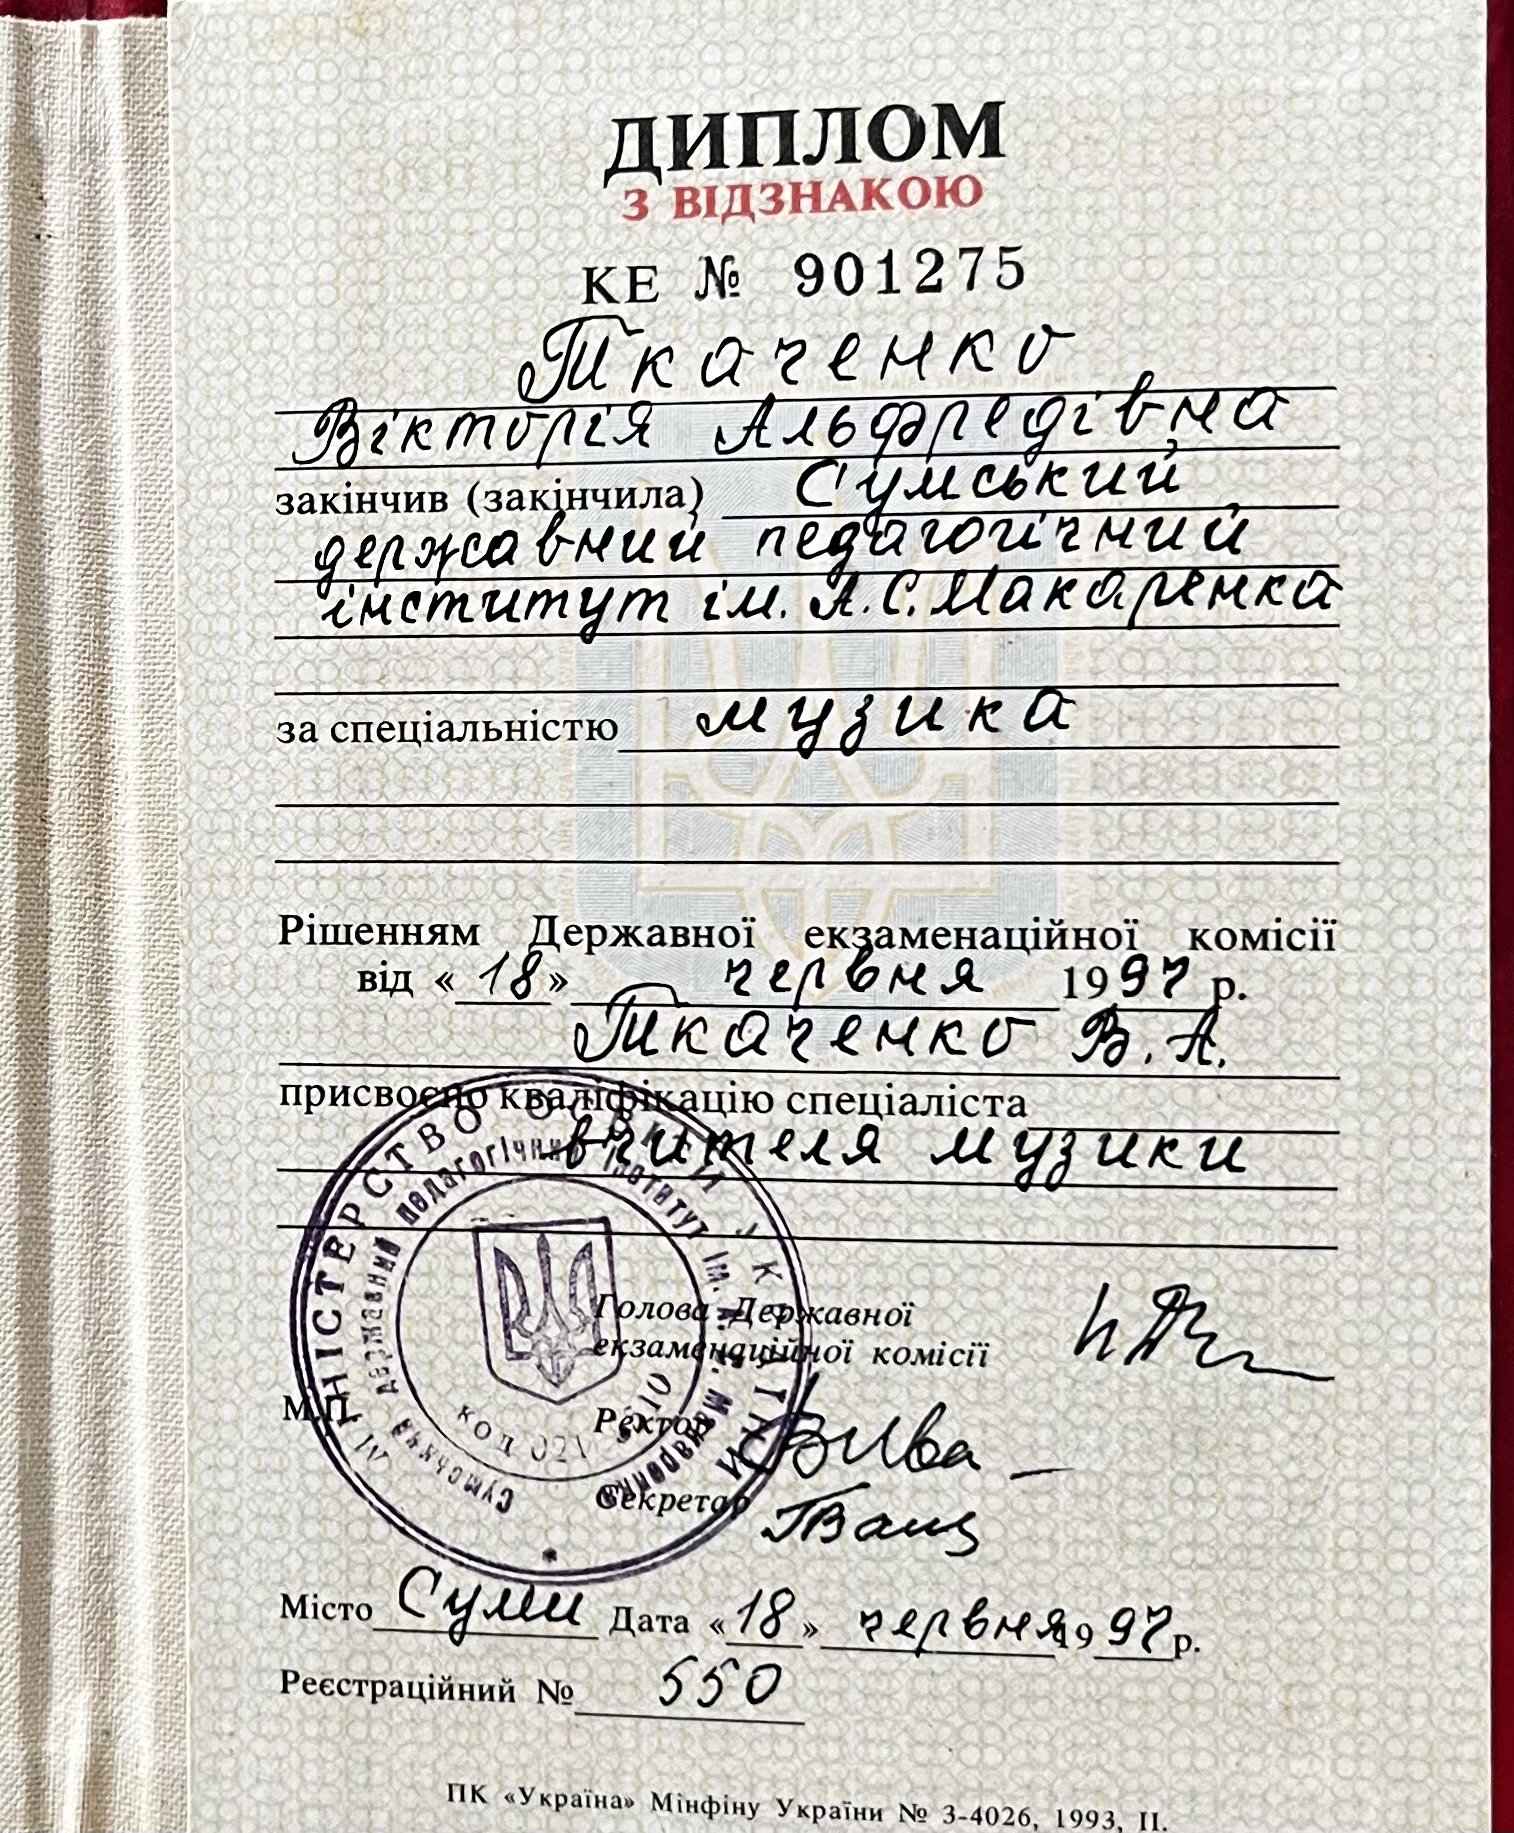 ДИПЛОМ
З ВІДЗНАКОЮ
КЕ № 901275
Ткаченко
Вікторія Альфредівна
закінчив (закінчила) Сумський
державний педагогічний
інститут ім. А.С. Макаренка
за спеціальністю музика
Рішенням Державної екзаменаційної комісії
від «18» червня 1997 р.
Ткаченко В.А.
присвоєно кваліфікацію спеціаліста
вчителя музики
МІНІСТЕРСТВО ОСВІТИ УКРАЇНИ
державний педагогічний інститут ім.
код
Голова Державної
екзаменаційної комісії
М.П.
Ректор
Секретар
Місто Суми Дата «18» червня 1997р.
Реєстраційний № 550
ПК «Україна» Мінфіну України № 3-4026, 1993, II.